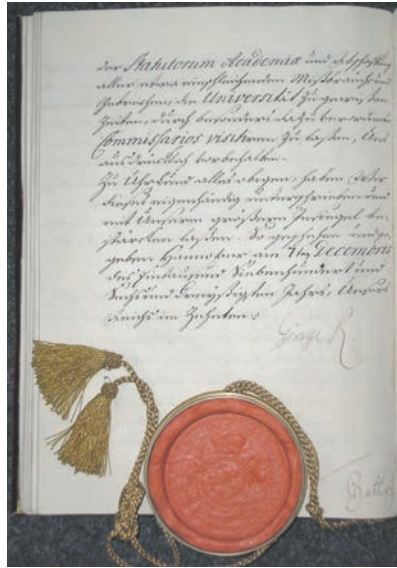 der Statutorum Academiæ und Abschaffung
aller etwa einschleichenden Mißbräuche und
Gebrechen, die Universität zu gewissen
Zeiten, durch besonders dazu verordnete
Commissarios visitiren zu laßen, Uns
ausdrücklich vorbehalten.
Zu Uhrkund alles obigen haben Wir
dieses eigenhändig unterschrieben und
mit Unserm größern Insiegel be,
stärcken laßen. So geschehen und ge,
geben Hannover am 7ten Decembris
des Eintausend Siebenhundert und
Sechs und Dreyßigsten Jahrs, Unsers
Reichs im Zehnten.
George R